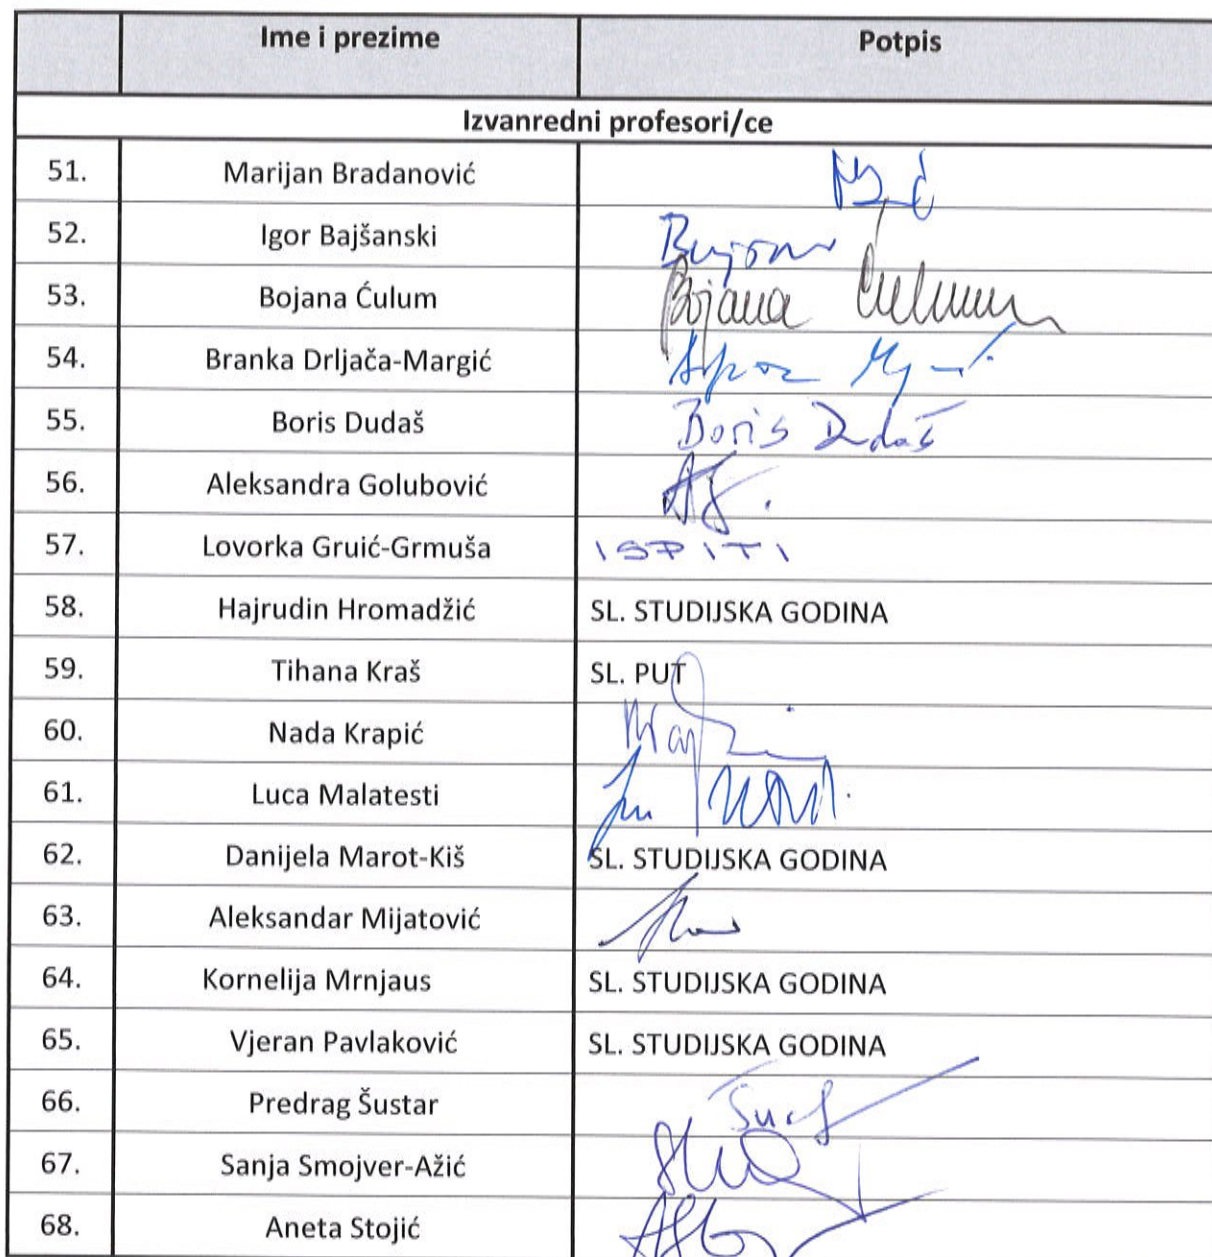 Ime i prezime Potpis
Izvanredni profesori/ce
51. Marijan Bradanović
52. Igor Bajšanski
53. Bojana Ćulum Bojana Ćulum
54. Branka Drljača-Margić
55. Boris Dudaš Boris Dudaš
56. Aleksandra Golubović
57. Lovorka Gruić-Grmuša ISPITI
58. Hajrudin Hromadžić SL. STUDIJSKA GODINA
59. Tihana Kraš SL. PUT
60. Nada Krapić
61. Luca Malatesti
62. Danijela Marot-Kiš SL. STUDIJSKA GODINA
63. Aleksandar Mijatović
64. Kornelija Mrnjaus SL. STUDIJSKA GODINA
65. Vjeran Pavlaković SL. STUDIJSKA GODINA
66. Predrag Šustar
67. Sanja Smojver-Ažić
68. Aneta Stojić